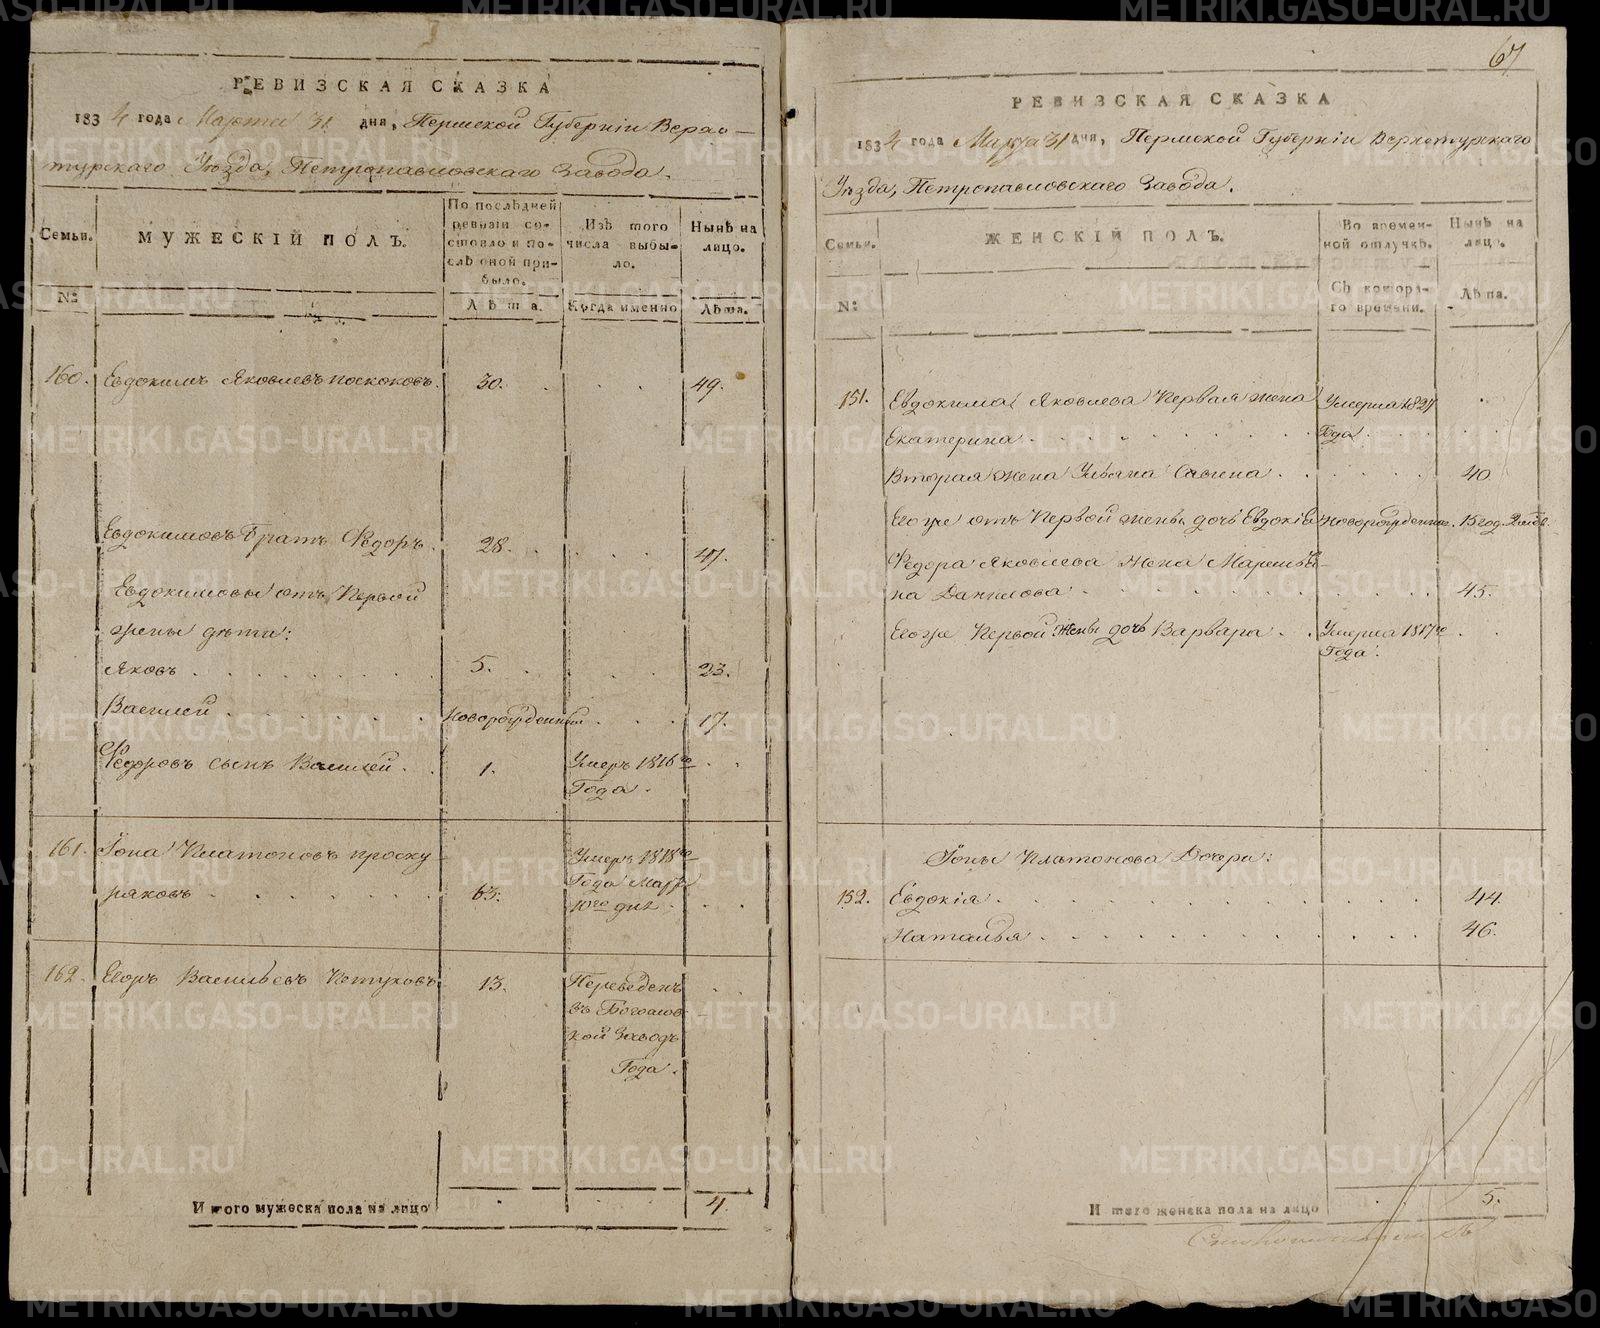 РЕВИЗСКАЯ СКАЗКА
1834 года Марта 31 дня, Пермской Губерніи Верхо-
турскаго Уѣзда, Петропавловскаго Завода.
Семьи.
МУЖЕСКІЙ ПОЛЪ.
По послѣдней
ревизіи со-
стояло и по-
слѣ оной при-
было.
Изъ того
числа выбы-
ло.
Нынѣ на
лицо.
№:
Лѣта.
Когда именно
Лѣта.
160. Евдокимъ Яковлевъ Поскоковъ. 30. 49.
Евдокимовъ Братъ Ѳедоръ. 28. 47.
Евдокимовы отъ Первой
жены дѣти:
Яковъ 5. 23.
Василей Новорожденный 17.
Ѳедоровъ сынъ Василей. 1. Умеръ 1816го
Года.
161. Іона Платоновъ Проску Умеръ 1818го
ряковъ 63. Года
10го дня
162. Егоръ Васильевъ Петуховъ 13. Переведенъ
въ Богослов
кой Заводъ
Года.
Итого мужеска пола на лицо 4.
67
РЕВИЗСКАЯ СКАЗКА
1834 года Марта 31 дня, Пермской Губерніи Верхотурскаго
Уѣзда, Петропавловскаго Завода.
Семьи.
ЖЕНСКІЙ ПОЛЪ.
Во времен-
ной отлучкѣ.
Нынѣ на
лицо.
№:
Съ котора-
го времени.
Лѣта.
151. Евдокима Яковлева Первая жена Умерла 1827
Екатерина Года
Вторая жена Ульяна Савина 40
Его же отъ Первой жены дочь Евдокія Новорожденная. 15 год.
Ѳедора Яковлева Жена Маремья-
на Данилова 45.
Его же Первой Жены дочь Варвара Умерла 1817го
Года.
Іоны Платонова Дочери:
152. Евдокія 44.
Наталья 46.
Итого женска пола на лицо 5.
METRIKI.GASO-URAL.RU